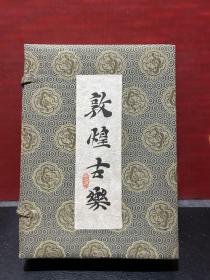 敦煌古樂